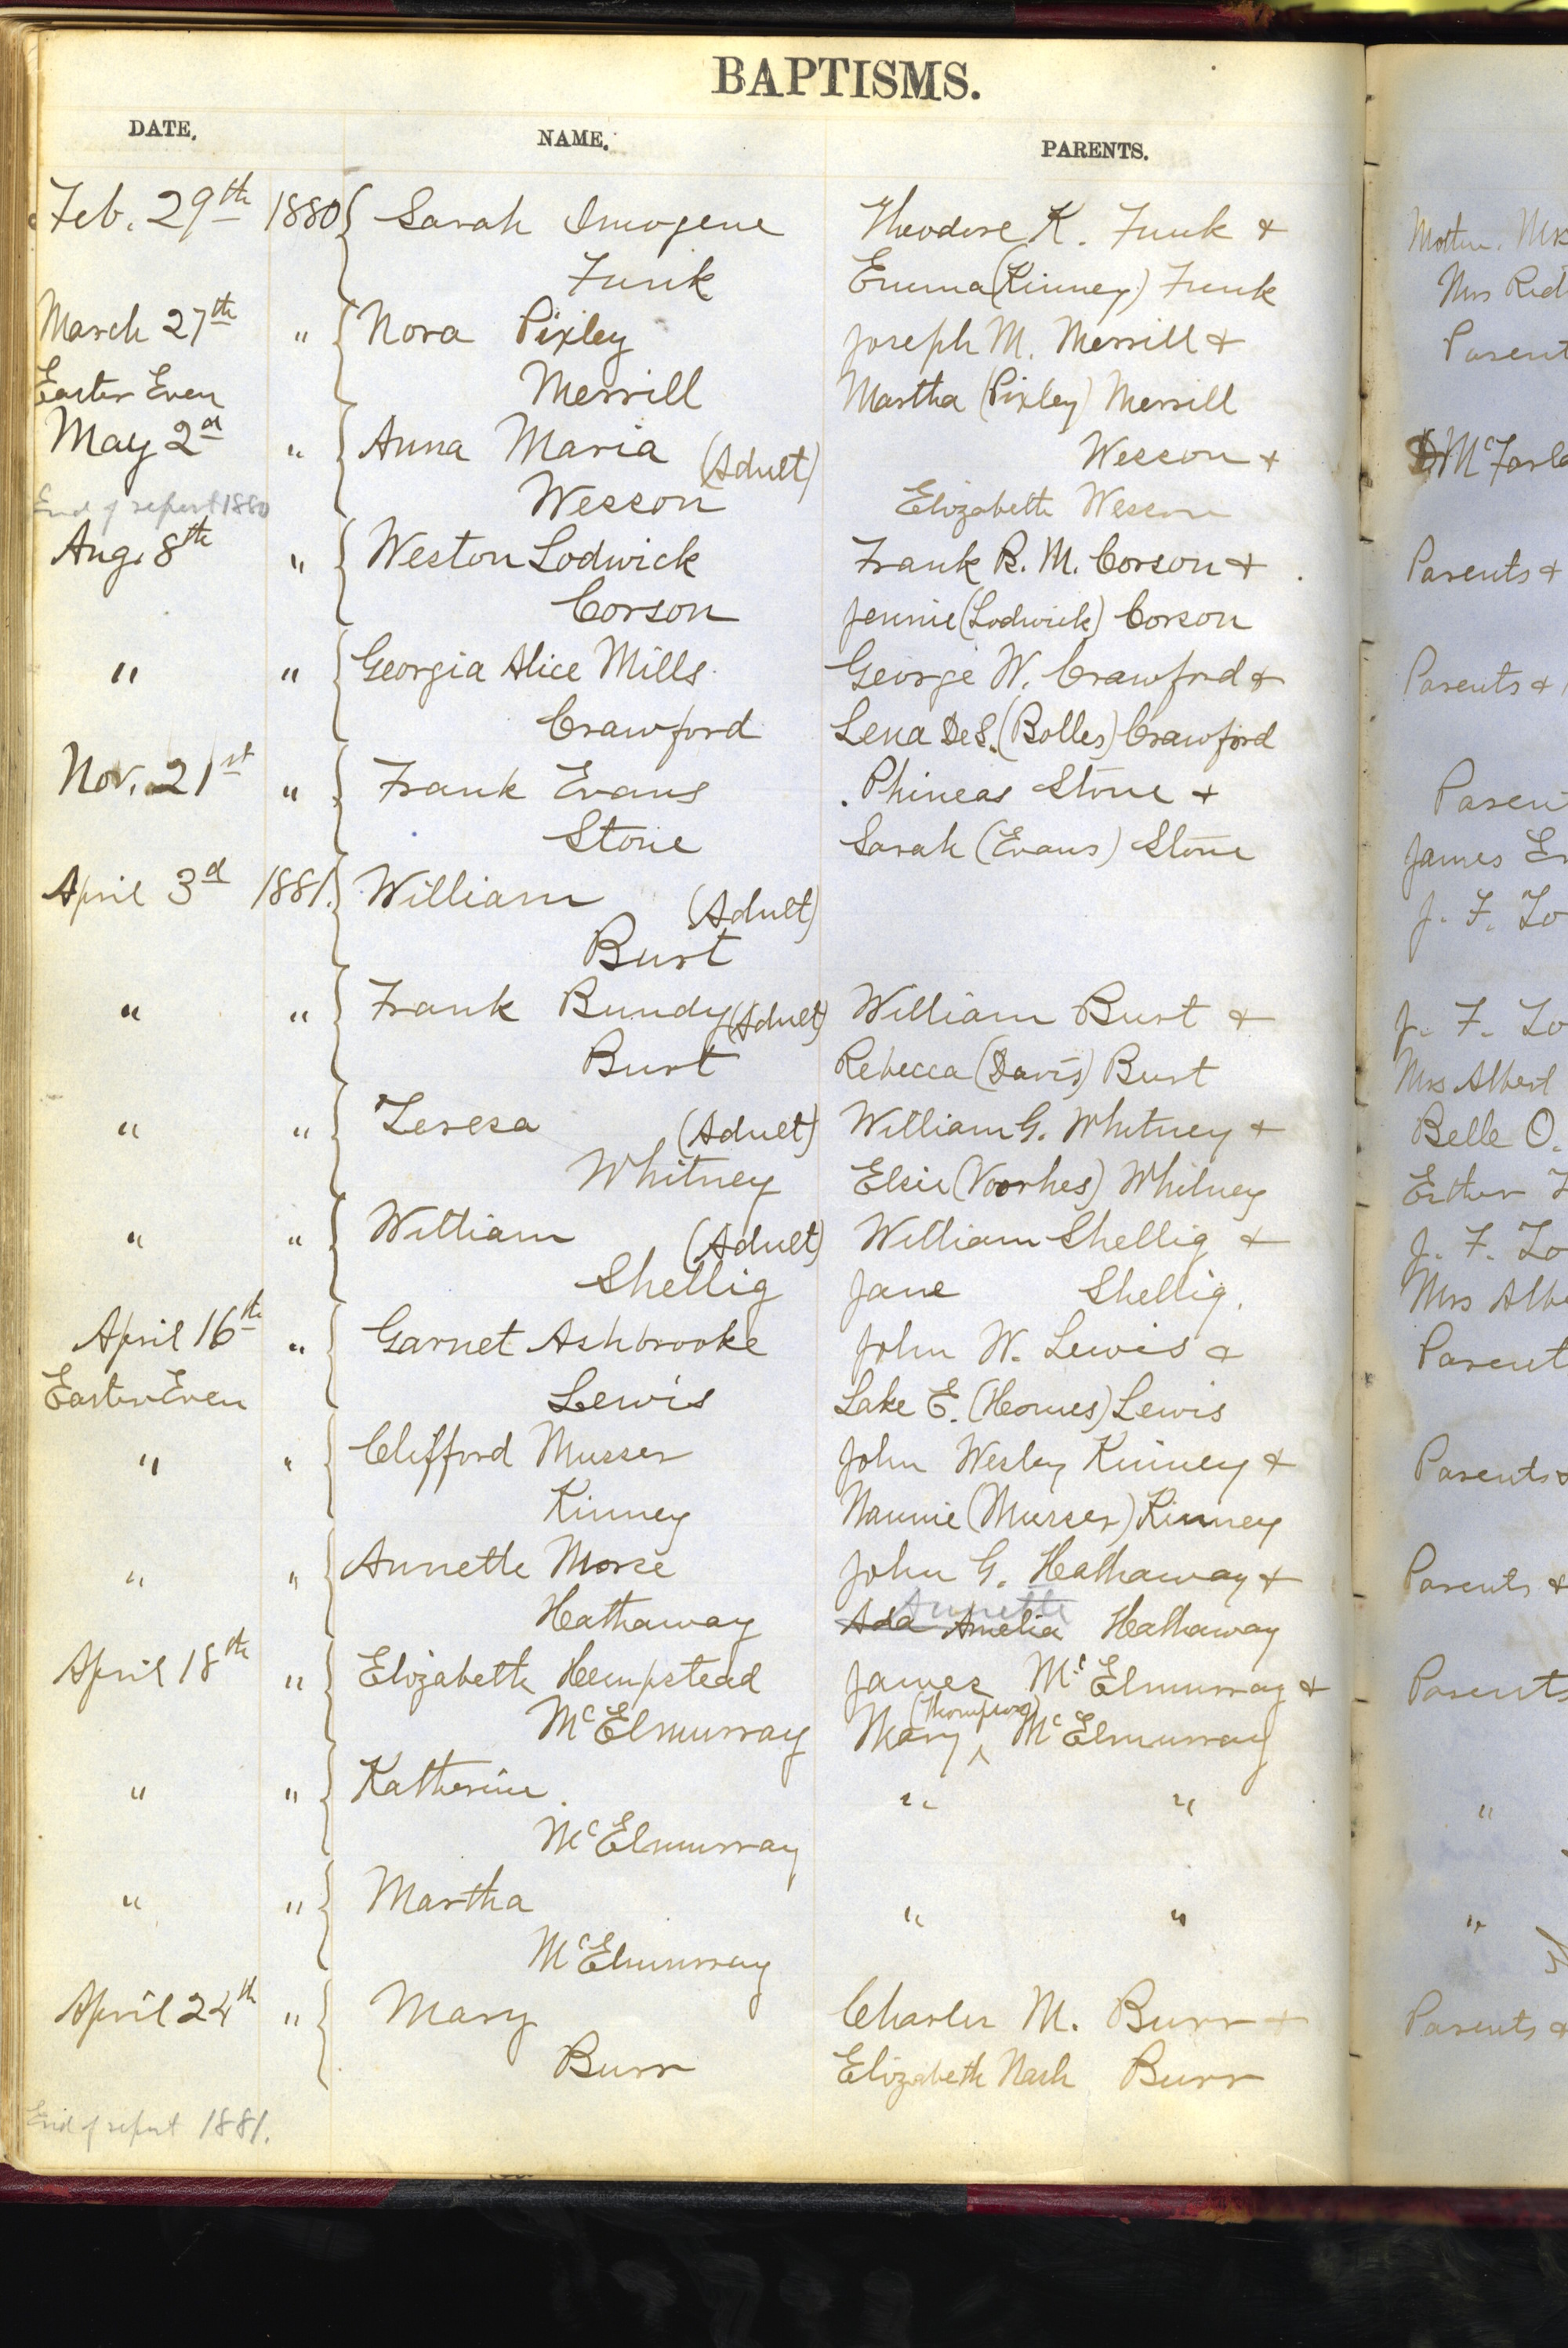 BAPTISMS.
DATE. NAME. PARENTS.
Feb. 29th 1880 { Sarah Imogene Theodore K. Funk +
Funk Emma (Kinney) Funk
March 27th " { Nora Pixley Joseph M. Merrill +
Easter Even Merrill Martha (Pixley) Merrill
May 2d " { Anna Maria (Adult) Wesson +
End of report 1880 Wesson Elizabeth Wesson
Aug. 8th " { Weston Lodwick Frank R. M. Corson +
Corson Jennie (Lodwick) Corson
" " { Georgia Alice Mills George W. Crawford +
Crawford Lena DeS. (Bolles) Crawford
Nov. 21st " { Frank Evans Phineas Stone +
Stone Sarah (Evans) Stone
April 3d 1881. { William (Adult)
Burt
" " { Frank Bundy (Adult) William Burt +
Burt Rebecca (Davis) Burt
" " { Teresa (Adult) William G. Whitney +
Whitney Elsie (Voorhes) Whitney
" " { William (Adult) William Shellig +
Shellig Jane Shellig.
April 16th " { Garnet Ashbrooke John W. Lewis +
Easter Even Lewis Lake E. (Homes) Lewis
" " { Clifford Musser John Wesley Kinney +
Kinney Nannie (Musser) Kinney
" " { Annette Morse John G. Hathaway +
Annette
Hathaway Ada Amelia Hathaway
April 18th " { Elizabeth Hempstead James McElmurray +
(Thompson)
McElmurray Mary ^ McElmurray
" " { Katherine " "
McElmurray
" " { Martha " "
McElmurray
April 24th " { Mary Charles M. Burr +
Burr Elizabeth Nash Burr
End of report 1881.
Mother. Mrs
Mrs
Parent
McFarla
Parents +
Parents +
Paren
James
J. F. To
J. F. To
Mrs Albert
Belle O.
Esther
J. F. To
Mrs Albe
Parent
Parents
Parents +
Parents
"
"
Parents +